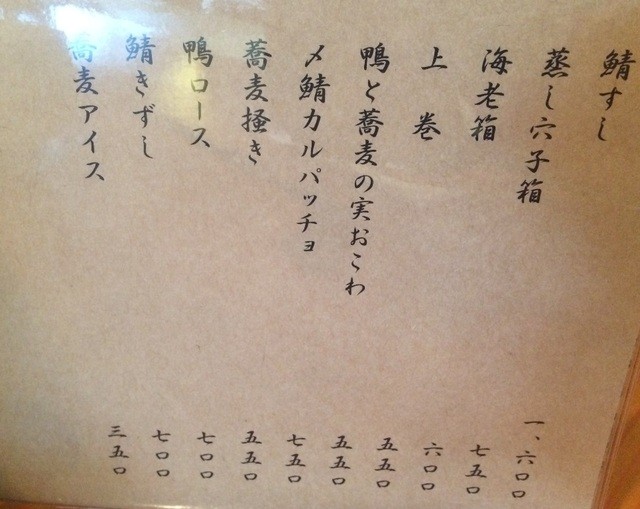 鯖すし 一、六〇〇
蒸し穴子箱 七五〇
海老箱 六〇〇
上巻 五五〇
鴨と蕎麦の実おこわ 五五〇
〆鯖カルパッチョ 七五〇
蕎麦掻き 五五〇
鴨ロース 七〇〇
鯖きずし 七〇〇
蕎麦アイス 三五〇